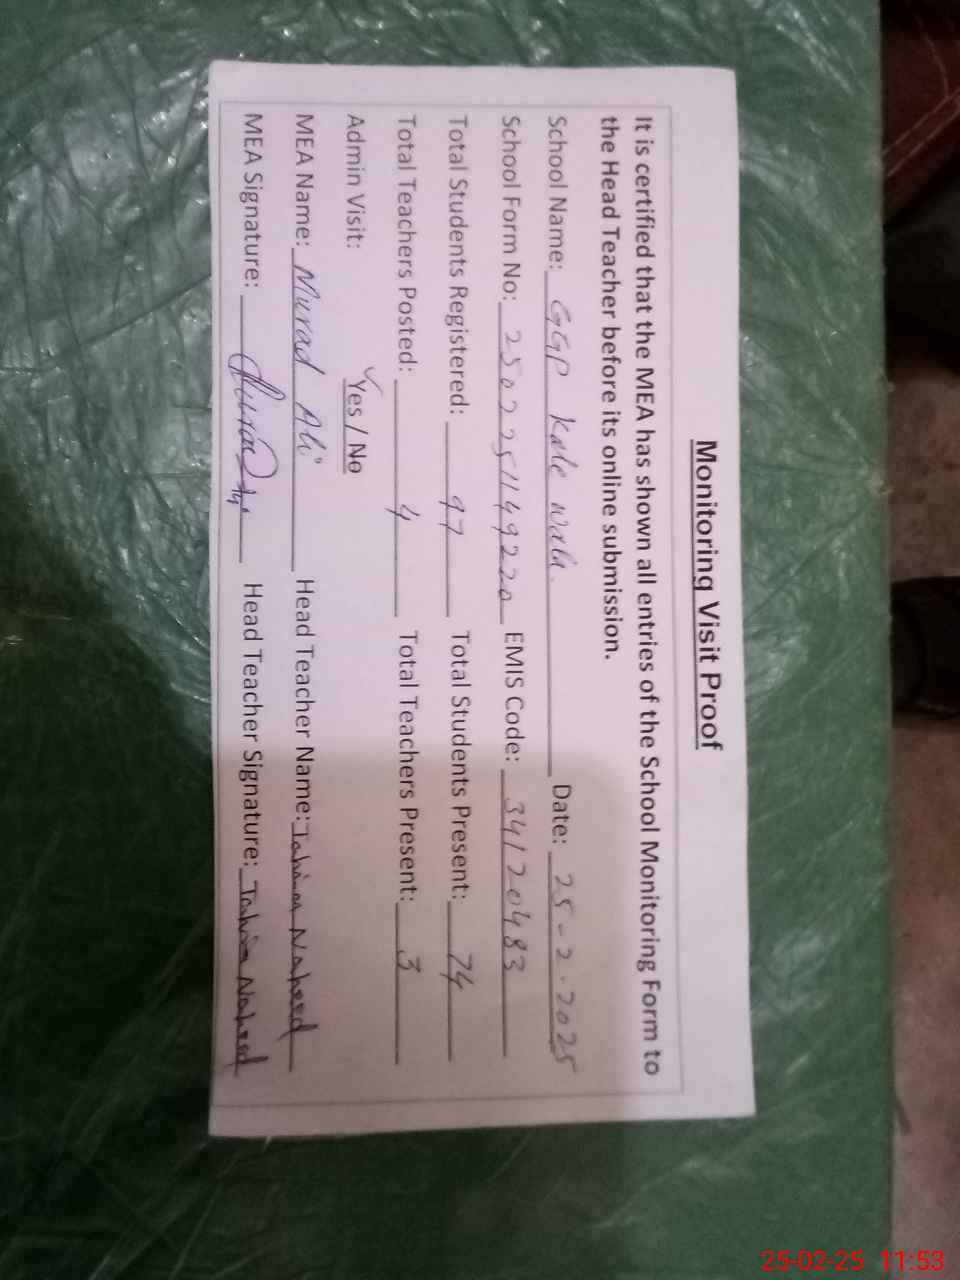 Monitoring Visit Proof
It is certified that the MEA has shown all entries of the School Monitoring Form to
the Head Teacher before its online submission.
School Name: GGP Kale Wala. Date: 25-2-2025
School Form No: 2502251149220 EMIS Code: 34120483
Total Students Registered: 97 Total Students Present: 74
Total Teachers Posted: 4 Total Teachers Present: 3
Admin Visit: Yes / No
MEA Name: Murad Ali Head Teacher Name: Naheed
MEA Signature: Head Teacher Signature: Naheed
25-02-25 11:53